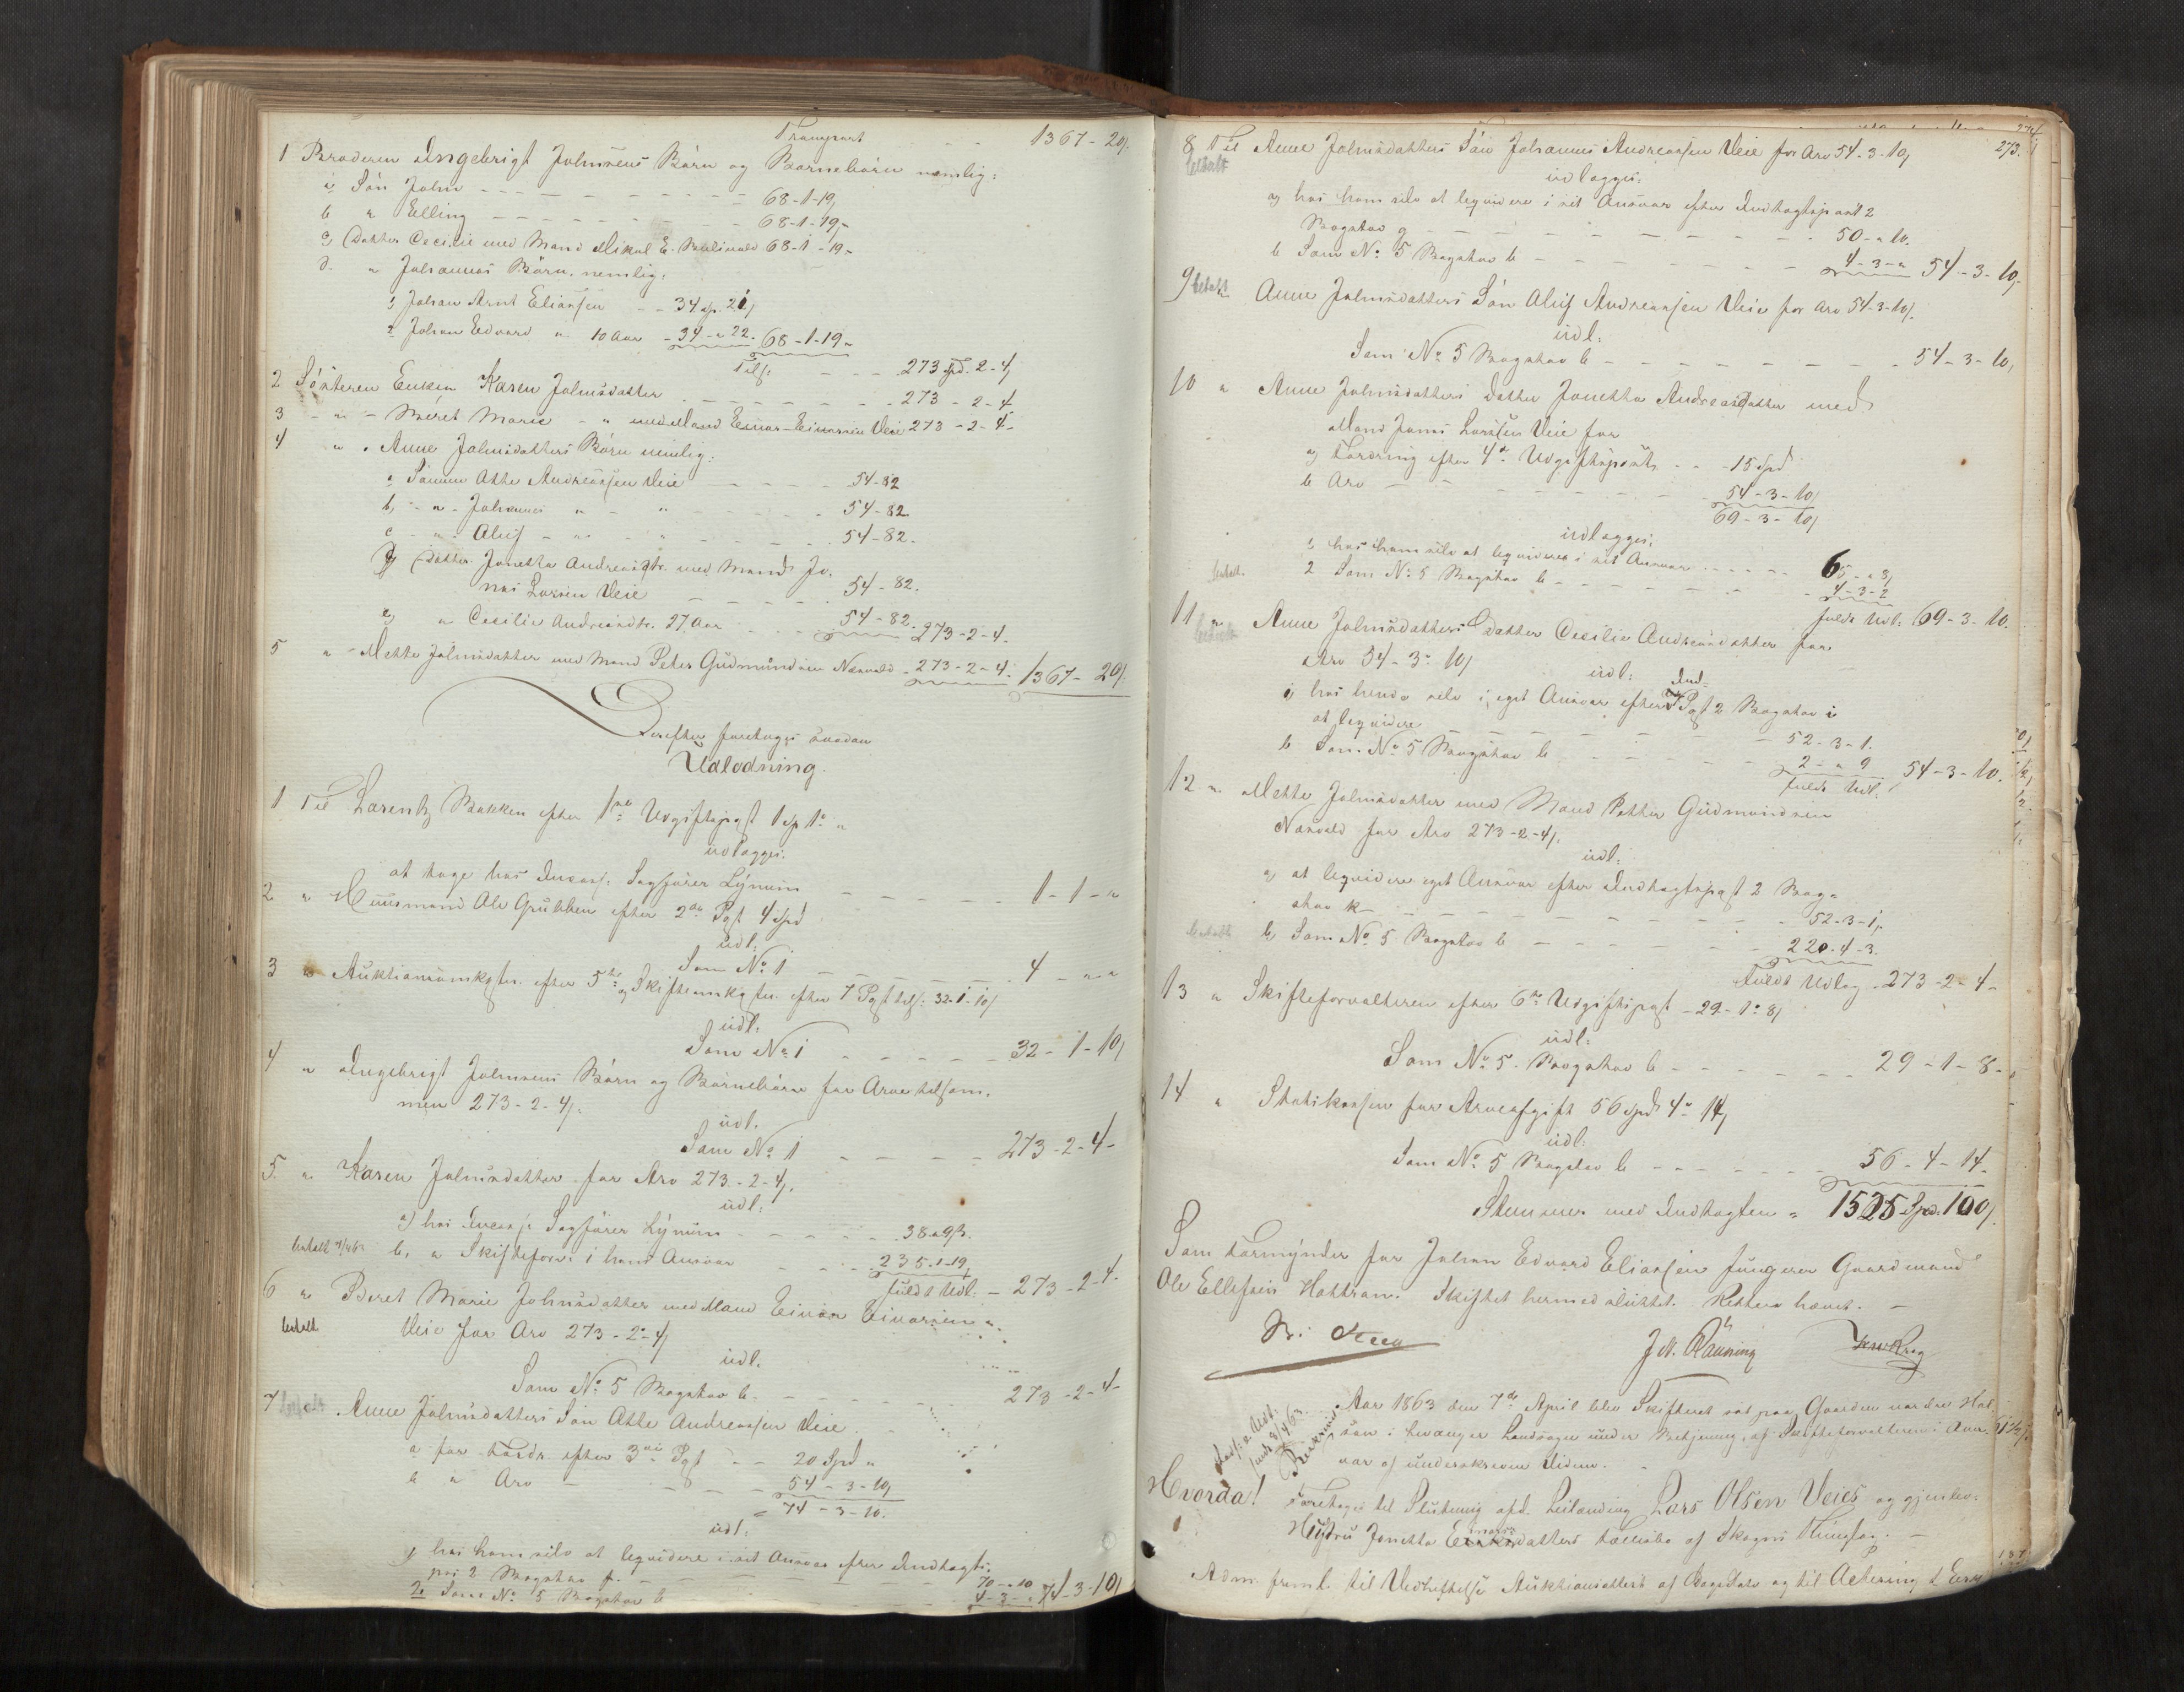 Transport - - 1367 - 20/.
1 Broderen Ingebrigt Johnsens Börn og Börnebörn nemlig:
a, Sön John - - - - - - - - 68-1-19,
b " Elling - - - - - - - 68-1-19,-
c, Datter Cecilie med Mand Mikal E. 68-1-19-
d. " Johannas Börn, nemlig:
1, Johan Arnt Eliassen - - 34 Sp. 21,
2 Johan Edvard " 10 Aar - 34 - " 22. 68-1-19-
Tils: - - - 273 Spd. 2-4,
2 Sösteren Enken Karen Johnsdatter - - - - - - - - 273 - 2 - 4
3 - " - Beret Marie - " med Mand Einar Einarsen Veie 273 - 2 - 4-
4 " . Anne Johnsdatters Börn nemlig:
a, Sönnen Atle Andreassen Veie - - - - 54-82
b, - " - Johannes " - " - - - - - 54-82.
c - " - Aluf - " - " - - - - - 54-82.
d, Datter Jonetta Andreasdtr. med Mand Jo-
nas Larsen Veie - - - - - 54-82.
e, " Cecilie Andreasdtr. 27 Aar - - - 54-82. 273-2-4.
5 " - Mette Johnsdatter med Mand Peter Gudmundsen Næsvold - 273-2-4. 1367 - 20/.
Derefter foretoges saadan
Udlodning.
1 Til Lorentz Bakken efter 1ste Udgiftspost 1 Sp 1 "
udlægges:
at tage hos Incass. Sagförer Lynum - - - - - 1-1-"
2 " Huusmand Ole Grubben efter 2den Pgst 4 Spd
udl:
Som No 1 - - - - - 4 - " "
3 " Auktionsomkgter. efter 5te og Skifteomkgter. efter 7 Pgst tils: 32-1-10/
udl:
Som No 1 - - - - - 32-1-10/
4 " Ingebrigt Johnsens Börn og Börnebörn for Arv tilsam-
men 273-2-4/.
udl.
Som No 1 - - - - 273-2-4-
5 " Karen Johnsdatter for Arv 273-2-4/.
udl:
a) hos Incass: Sagförer Lynum - - - - - 38 " 9 ß.
betalt b, " Skifteforv: i hans Ansvar - - - - 235-1-19,
fuldt Udl: - 273-2-4.
6 " Beret Marie Johnsdatter med Mand Einar Einarsen
betalt Veie for Arv 273-2-4/
udl.
Som No 5 Bogstav b. - - - - - 273-2-4-
7 betalt " Anne Johnsdatters Sön Atle Andreassen Veie
a for Fordr. efter 3die Pgst - - 20 Spd "
b " Arv - - - - 54-3-10,
74-3-10.
udl:
1 hos ham selv at leqvidere i sit Ansvar efter Indtægts-
pos 2 Bogstav f. - - - - - - 70 - " 10
2. Som No 5 Bogstav b - - - - - 4-3-" 74-3-10/
273.
8 Til Anne Johnsdatters Sön Johannes Andreassen Veie for Arv 54-3-10,
betalt udlægges:
a, hos ham selv at leqvidere i sit Ansvar efter Indtægtspost 2
Bogstav g - - - - - - - - - 50 - " 10.
b Som No 5 Bogstav b - - - - - - - 4-3-" 54-3-10,
9 betalt Anne Johnsdatters Sön Aluf Andreassen Veie for Arv 54-3-10/.
udl:
Som No 5 Bogstav b - - - - - - - 54-3-10,
10 " Anne Johnsdatters Datter Jonetta Andreasdatter med
Mand Jonas Larssen Veie for
a, Fordring efter 4de Udgiftspost - - 15 Spd
b Arv - - - - - - - 54-3-10,
69-3-10,
udlægges:
1, hos ham selv at leqvidere i sit Ansvar - - - - - 65 - " 8,
betalt. 2 Som No 5 Bogstav b - - - - - - 4-3-2
fuldt Udl. 69-3-10.
11 " Anne Johnsdatters Datter Cecilie Andreasdatter for
betalt Arv 54-3-10,
udl:
Ind-
1, hos hende selv i eget Ansvar efter Pgst 2 Bogstav i
at leqvidere - - - - - - - 52-3-1.
b Som No 5 Bogstav b - - - - - - 2 - " 9 54-3-10.
fuldt Udl:
12 " Mette Johnsdatter med Mand Petter Gudmundsen
Næsvold for Arv 273-2-4/.
udl:
a, at leqvidere eget Ansvar efter Indtægtspgst 2 Bog-
stav k - - - - - - - - - 52-3-1,
betalt b, Som No 5 Bogstav b - - - - - - 220-4-3.
fuldt Udlæg - 273-2-4-
13 " Skifteforvalteren efter 6te Udgiftspgst - 29-1-8/
udl:
Som No 5. Bogstav b - - - - - - 29-1-8-
14 " Statskassen for Arveafgift 56 Spd 4-14,
udl:
Som No 5 Bogstav b - - - - - - 56-4-14-
Stemmer med Indtægten = 1525 Spd. 100/.
Som Formynder for Johan Edvard Eliassen fungerer Gaardmand
Ole Ellefsen Hattran. Skiftet hermed sluttet. Retten hævet. -
Aar 1863 den 7de April blev Skifteret sat paa Gaarden nordre Hal-
san i Levanger Landsogn under Betjening af Skifteforvalteren i Over-
vær af underskrevne Vidner. -
Hvorda! Foretoges til Slutning afd. Leilænding Lars Olsen Veies og gjenlev.
Hustru Jonetta Einarsdatters Fællesbo af Skogns Thinglag. -
Adm. freml. til Vedheftelse Auktionsattest af Dags Dato og til Actering 1 Ex.